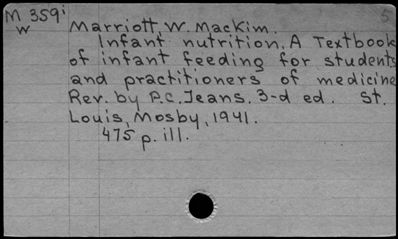 M 359i 5
w Marriott W. MacKim.
Infant nutrition. A Textbook
of infant feeding for students
and practitioners of medicine
Rev. by P.C. Jeans. 3-d ed. St.
Louis, Mosby, 1941.
475 p. ill.